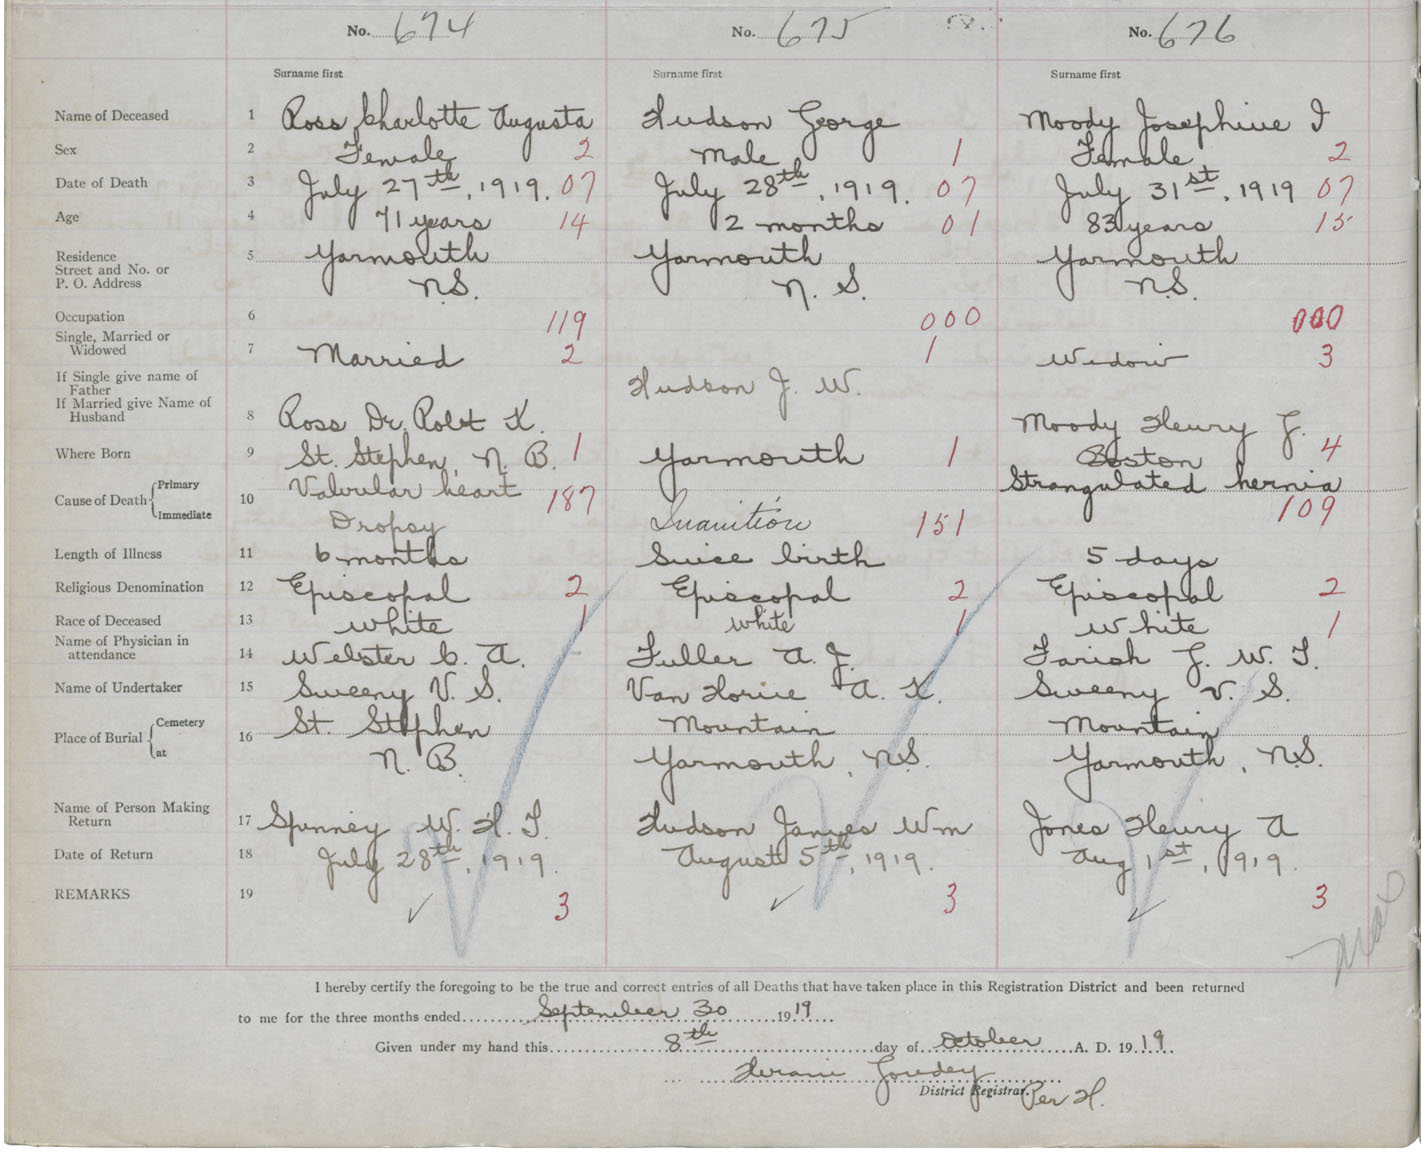 No. 674 No. 675 No. 676
Surname first Surname first Surname first
Name of Deceased 1 Ross Charlotte Augusta Hudson George Moody Josephine I
Sex 2 Female 2 Male 1 Female 2
Date of Death 3 July 27th, 1919. 07 July 28th, 1919. 07 July 31st, 1919 07
Age 4 71 years 14 2 months 01 83 years 15
Residence 5 Yarmouth Yarmouth Yarmouth
Street and No. or
P. O. Address N.S. N. S. N.S.
Occupation 6 119 000 000
Single, Married or
Widowed 7 Married 2 1 Widow 3
If Single give name of
Father Hudson J. W.
If Married give Name of
Husband 8 Ross Dr. Robt K. Moody Henry G.
Where Born 9 St. Stephen, N. B. 1 Yarmouth 1 Boston 4
Primary Valvular heart Strangulated hernia
Cause of Death 10 187 109
Immediate Dropsy Inanition 151
Length of Illness 11 6 months Since birth 5 days
Religious Denomination 12 Episcopal 2 Episcopal 2 Episcopal 2
Race of Deceased 13 White 1 White 1 White 1
Name of Physician in
attendance 14 Webster C. A. Fuller A. J. Farish G. W. T.
Name of Undertaker 15 Sweeny V. S. Van Horne A. K. Sweeny V. S.
Cemetery St. Stephen Mountain Mountain
Place of Burial 16
at N. B. Yarmouth, N.S. Yarmouth, N.S.
Name of Person Making
Return 17 Spinney W. H. T. Hudson James Wm Jones Henry A
Date of Return 18 July 28th, 1919. August 5th, 1919. Aug 1st, 1919.
REMARKS 19 ✓ 3 ✓ 3 ✓ 3
I hereby certify the foregoing to be the true and correct entries of all Deaths that have taken place in this Registration District and been returned
to me for the three months ended September 30 1919
Given under my hand this 8th day of October A. D. 1919.
Hiram Goudey
District Registrar. Per H.